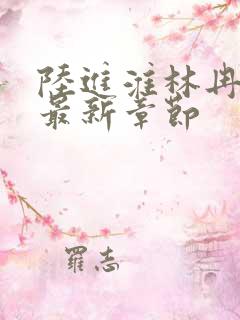 陸進淮林冉
最新章節
羅志